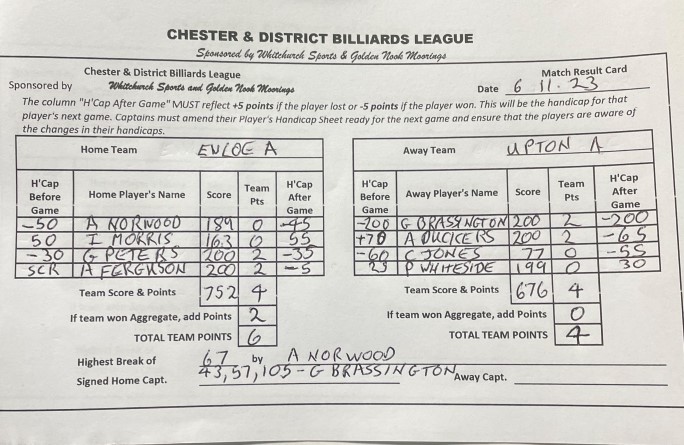 CHESTER & DISTRICT BILLIARDS LEAGUE
Sponsored by Whitchurch Sports & Golden Nook Moorings
Chester & District Billiards League Match Result Card
Sponsored by Whitchurch Sports and Golden Nook Moorings Date 6 11.23
The column "H'Cap After Game" MUST reflect +5 points if the player lost or -5 points if the player won. This will be the handicap for that
player's next game. Captains must amend their Player's Handicap Sheet ready for the next game and ensure that the players are aware of
the changes in their handicaps.
Home Team ENLOE A
H'Cap Before Game Home Player's Name Score Team Pts H'Cap After Game
-50 A NORWOOD 189 0 -45
50 I MORRIS 163 0 55
-30 G PETERS 200 2 -35
SCR A FERGUSON 200 2 -5
Team Score & Points 752 4
If team won Aggregate, add Points 2
TOTAL TEAM POINTS 6
Away Team UPTON A
H'Cap Before Game Away Player's Name Score Team Pts H'Cap After Game
-200 G BRASSINGTON 200 2 -200
+70 A DUCKERS 200 2 -65
-60 C JONES 77 0 -55
25 P WHITESIDE 199 0 30
Team Score & Points 676 4
If team won Aggregate, add Points 0
TOTAL TEAM POINTS 4
Highest Break of 67 by A NORWOOD
43, 57, 105 - G BRASSINGTON
Signed Home Capt. Away Capt.